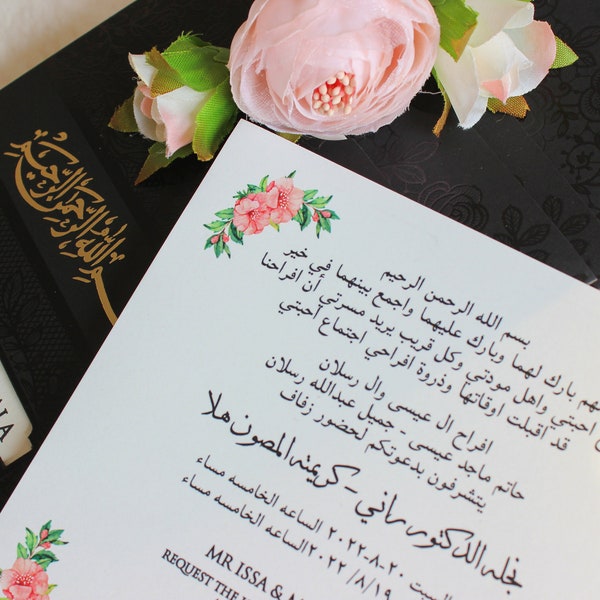 بسم الله الرحمن الرحيم
بارك لهما وبارك عليهما واجمع بينهما في خير
احبتي واهل مودتي وكل قريب يريد مسرتي أن افراحنا
قد اقبلت اوقاتها وذروة افراحي اجتماع احبتي
افراح ال عيسى وال رسلان
حاتم ماجد عيسى - جميل عبدالله رسلان
يتشرفون بدعوتكم لحضور زفاف
نجله الدكتور راني - كريمته المصون هلا
السبت ٢٠-٨-٢٠٢٢ الساعه الخامسه مساء
٢٠٢٢/٨/١٩ الساعه الخامسه مساء
MR ISSA &
REQUEST THE
بسم الله الرحمن الرحيم